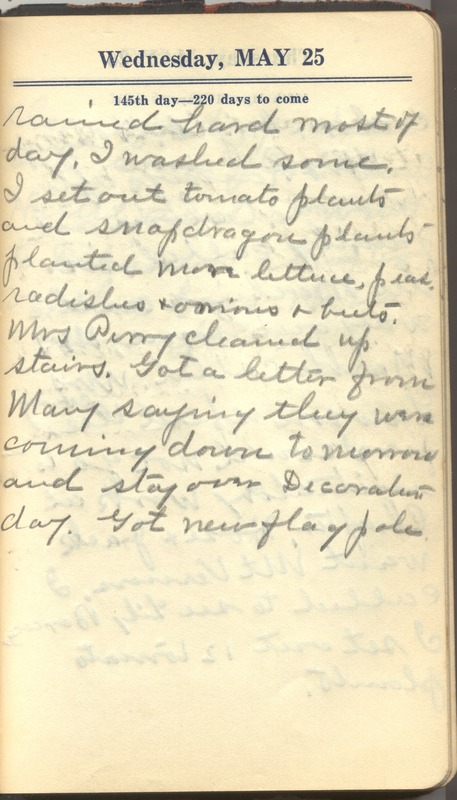 Wednesday, MAY 25
145th day—220 days to come
rained hard most of
day. I washed some.
I set out tomato plants
and snapdragon plants
planted more lettuce, peas.
radishes + onions + beets.
Mrs Perry cleaned up
stairs. Got a letter from
Mary saying they were
coming down tomorrow
and stay over Decoration
day. Got new flag pole